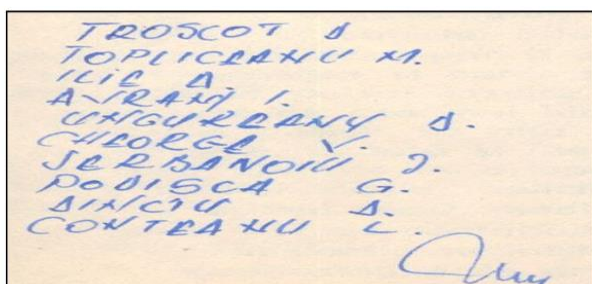 TROSCOT D.
TOPLICEANU M.
ILIE D.
AVRAM I.
UNGUREANU D.
GHEORGE V.
SERBANOIU I.
PODISCA G.
DINCIU D.
CONTEANU L.